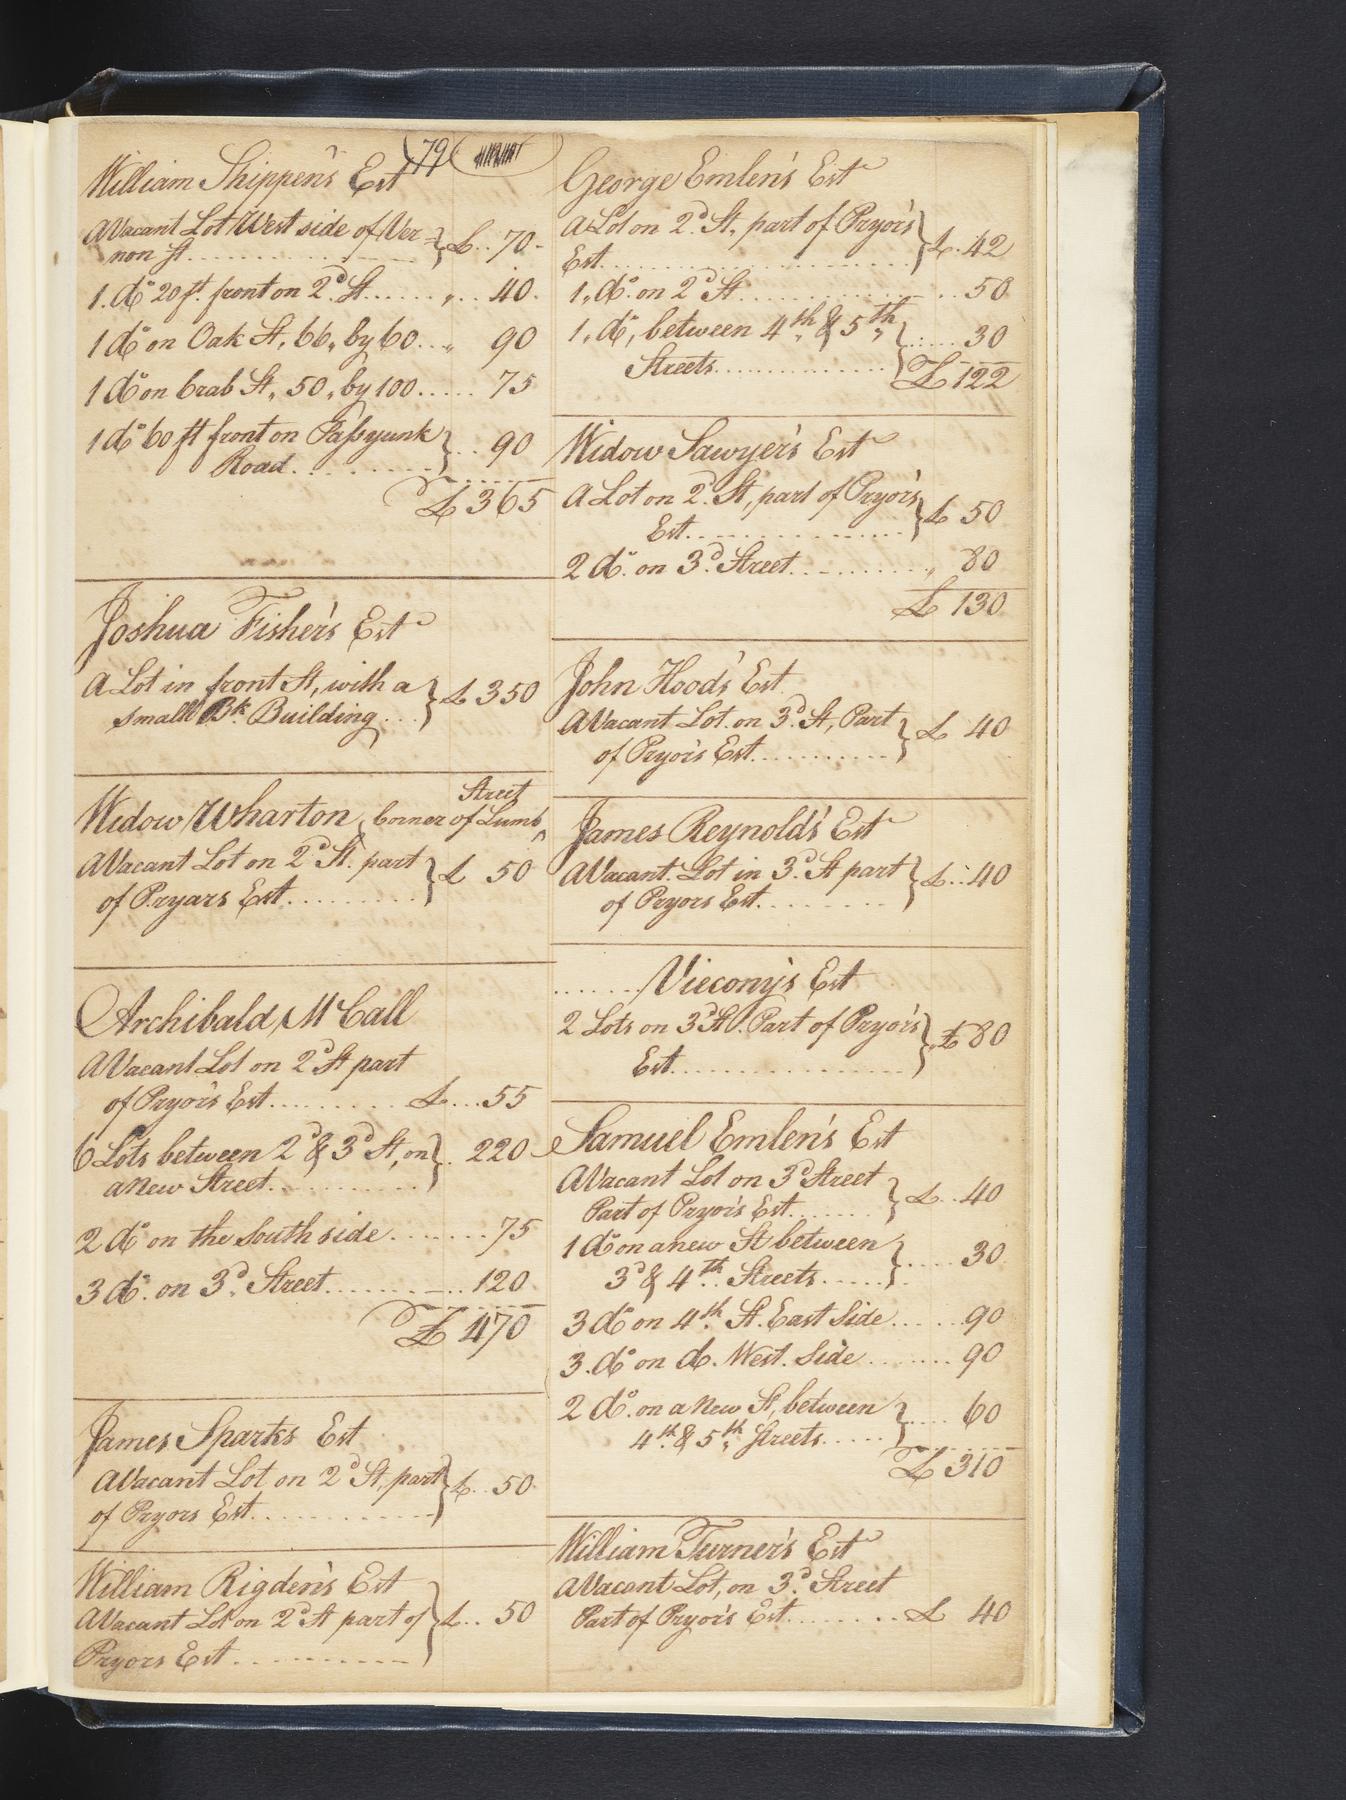 79
William Shippen's Est
A Vacant Lot West side of Ver=
non St. £.. 70-
1. do 20 ft. front on 2d St...... 40.
1 do on Oak St, 66, by 60... 90
1 do on Crab St, 50, by 100..... 75
1 do 60 ft front on Passyunk
Road......... 90
£ 365
Joshua Fisher's Est
A Lot in front St, with a
small Bk Building... £ 350
Street
Widow Wharton, Corner of Lumb
A Vacant Lot on 2d St. part
of Pryars Est......... £ 50
Archibald McCall
A Vacant Lot on 2d St part
of Pryor's Est......... £....55
6 Lots between 2d & 3d St, on
a new Street.......... 220
2 do on the South side.......75
3 do. on 3d. Street......... 120
£ 470
James Sparks Est
A Vacant Lot on 2d St, part
of Pryors Est........... £.. 50
William Rigden's Est
A Vacant Lot on 2d St part of
Pryors Est........... £.. 50
George Emlen's Est
A Lot on 2d. St, part of Pryor's
Est................. £. 42
1, do. on 2d St............... 50
1, do, between 4th & 5th
Streets............... 30
£ 122
Widow Sawyer's Est
A Lot on 2d. St, part of Pryor's
Est............... £ 50
2 do. on 3d. Street.......... 80
£ 130
John Hood's Est
A Vacant Lot on 3d. St, Part
of Pryor's Est........... £ 40
James Reynold's Est
A Vacant Lot in 3d. St part
of Pryors Est......... £..40
.......Viecony's Est
2 Lots on 3d St. Part of Pryor's
Est................ £ 80
Samuel Emlen's Est
A Vacant Lot on 3d Street
Part of Pryor's Est....... £..40
1 do on a new St between
3d & 4th Streets...... 30
3 do on 4th St. East Side......90
3. do on do. West. Side........90
2 do. on a New St, between
4th & 5th Streets..... 60
£ 310
William Turner's Est
A Vacant Lot, on 3d. Street
Part of Pryor's Est........ £ 40